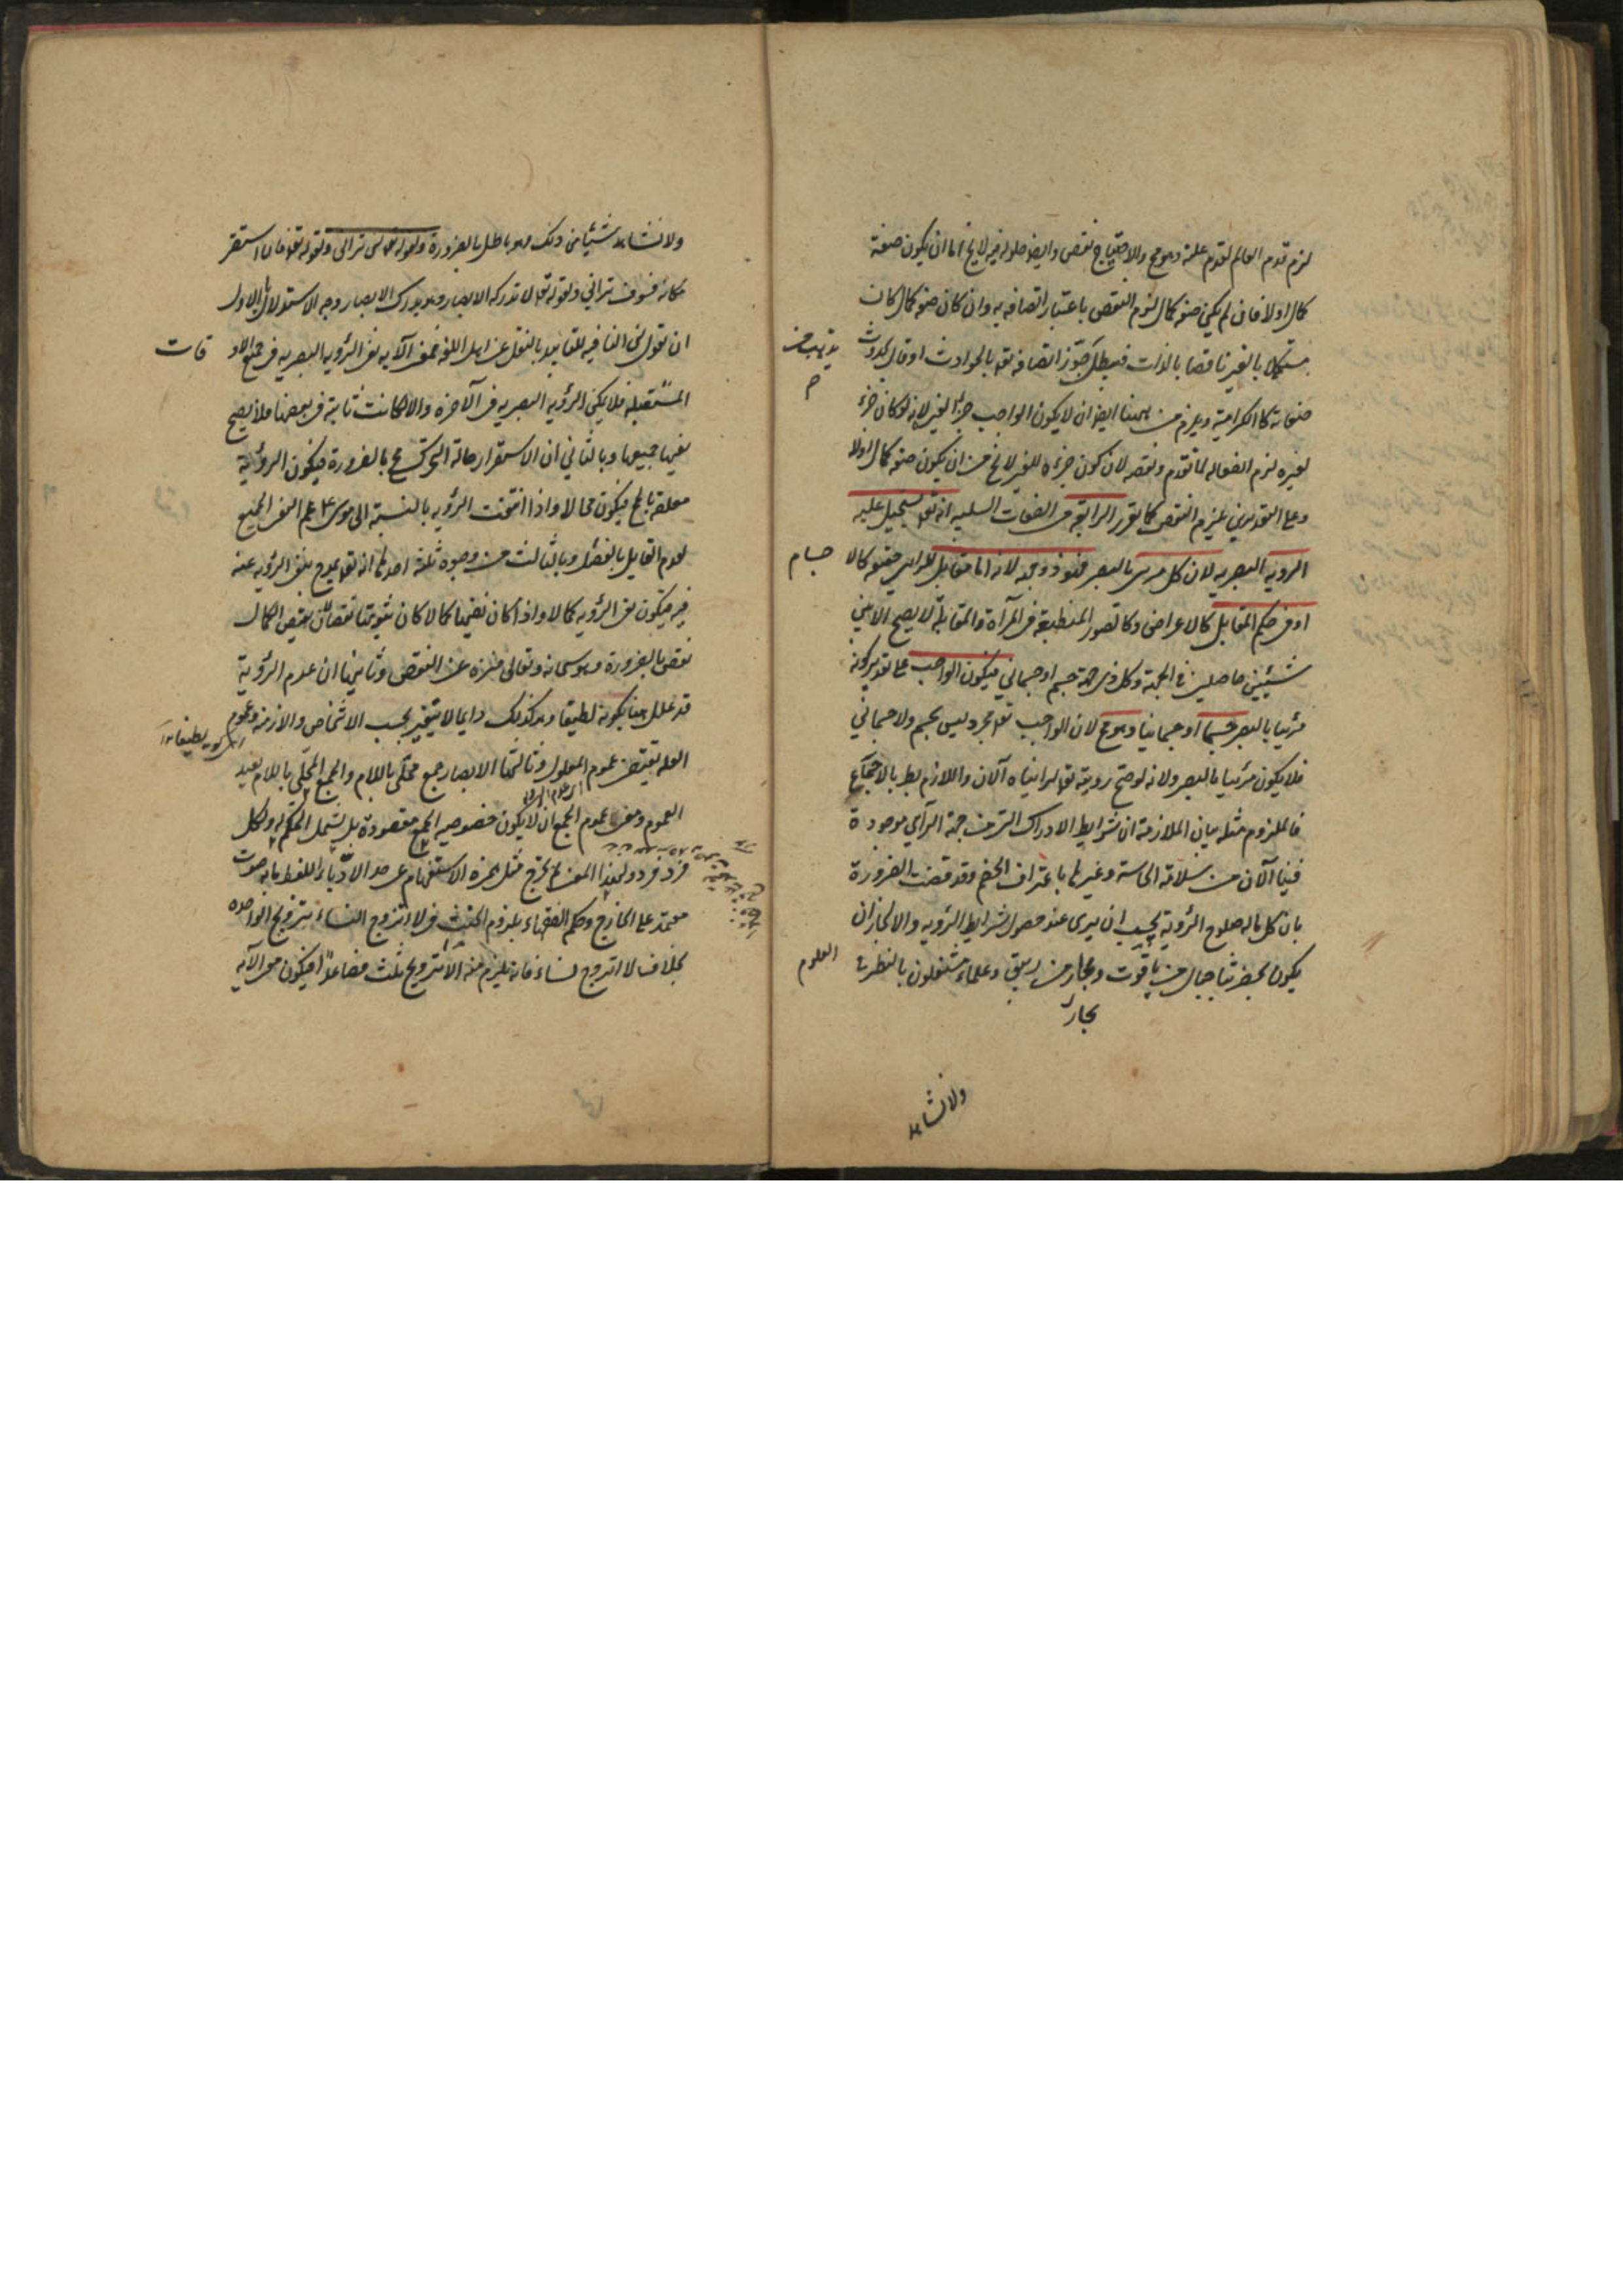 لزم قدم العالم لقدم علته وهو مح والاحتياج نقص وايضا حلوله فيه لا يخ اما ان يكون صفة
كمال اولا فان لم يكن صفة كمال لزم النقص باعتبار اتصافه به وان كان صفة كمال كان
مستكملا بالغير ناقصا بالذات فيبطل جوز اتصافه تعه بالحوادث او قال بحدوث
صفاته كالكرامية ويلزم من ههنا ايضا ان لا يكون الواجب جزء الغير لانه لو كان جزء
لغيره لزم انفعاله لما تقدم ونقصه لان كون جزءه للغير لا يخ من ان يكون صفة كمال اولا
وعلى التقديرين يلزم النقص كما تقرر الرابعة من الصفات السلبيه انه تعه يستحيل عليه
الروية البصريه لان كل مرئى بالبصر فهو ذو جهة لانه اما مقابل للرائي حقيقة كالا
جسام
او فى حكم المقابل كالاعراض وكالصور المنطبعة فى المرآة والمقابلة لا يصح الا بين
شيئين حاصلين فى الجهة وكل ذى جهة جسم او جسماني فيكون الواجب على تقدير كونه
مرئيا بالبصر جسما او جسمانيا وهو مح لان الواجب تعه مجرد ليس بجسم ولا جسماني
فلا يكون مرئيا بالبصر ولانه لو صح رويته تعه لرايناه الآن واللازم بط بالاجماع
فالملزوم مثله بيان الملازمة ان شرايط الادراك التى من جهة الرآي موجودة
فينا الآن من سلامة الحاسة وغيرها باعتراف الخصم وقد قضت الضرورة
بان كل ماله صلوح الروية يجب ان يرى عند حصول شرايط الروية والا لجاز ان
يكون بحضرتنا جبال من ياقوت وبحار من زيبق وعلماء مشتغلون بالنظر فى
العلوم
بحار
ولا نشاهد
ولا نشاهد شيئا من ذلك وهو باطل بالضرورة ولقوله تعه لن ترانى ولقوله تعه فان استقر
مكانه فسوف ترانى ولقوله تعه لا تدركه الابصار وهو يدرك الابصار وجه الاستدلال بالاول
ان نقول لن النافيه للتابيد بالنقل عن اهل اللغة فمعنى الآيه نفى الرؤيه البصريه فى جميع الاو
قات
المستقبله فلا يكون الرؤيه البصريه فى الآخره والا لكانت ثابتة فى بعضها فلا يصح
نفيها جميعها وبالثاني ان الاستقرار حالة التحرك مح بالضرورة فيكون الرؤية
معلقة بالمح فيكون محالا واذا انتفت الرؤيه بالنسبة الى موسى ع عم النفى الجميع
لعدم القايل بالفصل وبالثالث من وجوه ثلثه احدها انه تعه تمدح بنفى الرؤيه عنه
فيه فيكون نفى الرؤيه كمالا واذا كان نفيها كمالا كان ثبوتها نقصا لان نقيض الكمال
نقص بالضرورة وهو سبحانه وتعالى منزه عن النقص وثانيها ان عدم الرؤية
قد علل هنا بكونه لطيفا وهو كذلك دايما لا يتغير بحسب الاشخاص والازمنه وعموم
العله يقتضى عموم المعلول وثالثها الابصار جمع محلى باللام والجمع المحلى باللام يفيد
العموم ومعنى عموم الجمع ان لا يكون خصوصيه الجمع مقصودة بل يشمل الحكم له ولكل
فرد فرد ولهذا المعنى
معتمد على الخارج وحكم الفقهاء بلزوم الحنث فى لا اتزوج النساء بتزويج الواحده
بخلاف لا اتزوج نساء فانه يلزم منه الا بتزويج ثلث فصاعدا فيكون معنى الآيه